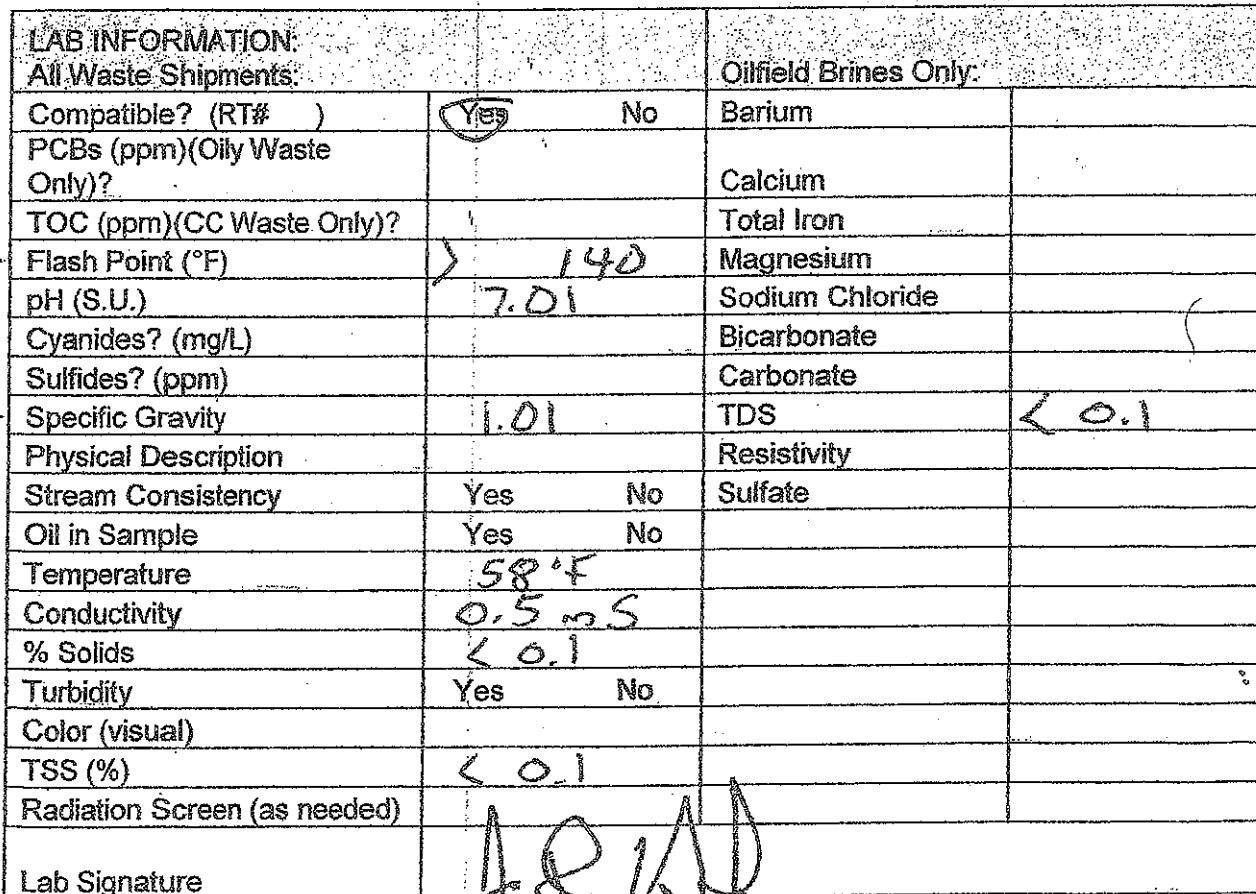 LAB INFORMATION:
All Waste Shipments: Oilfield Brines Only:
Compatible? (RT# ) Yes No Barium
PCBs (ppm)(Oily Waste
Only)? Calcium
TOC (ppm)(CC Waste Only)? Total Iron
Flash Point (°F) > 140 Magnesium
pH (S.U.) 7.01 Sodium Chloride
Cyanides? (mg/L) Bicarbonate
Sulfides? (ppm) Carbonate
Specific Gravity 1.01 TDS < 0.1
Physical Description Resistivity
Stream Consistency Yes No Sulfate
Oil in Sample Yes No
Temperature 58°F
Conductivity 0.5 mS
% Solids < 0.1
Turbidity Yes No
Color (visual)
TSS (%) < 0.1
Radiation Screen (as needed)
Lab Signature